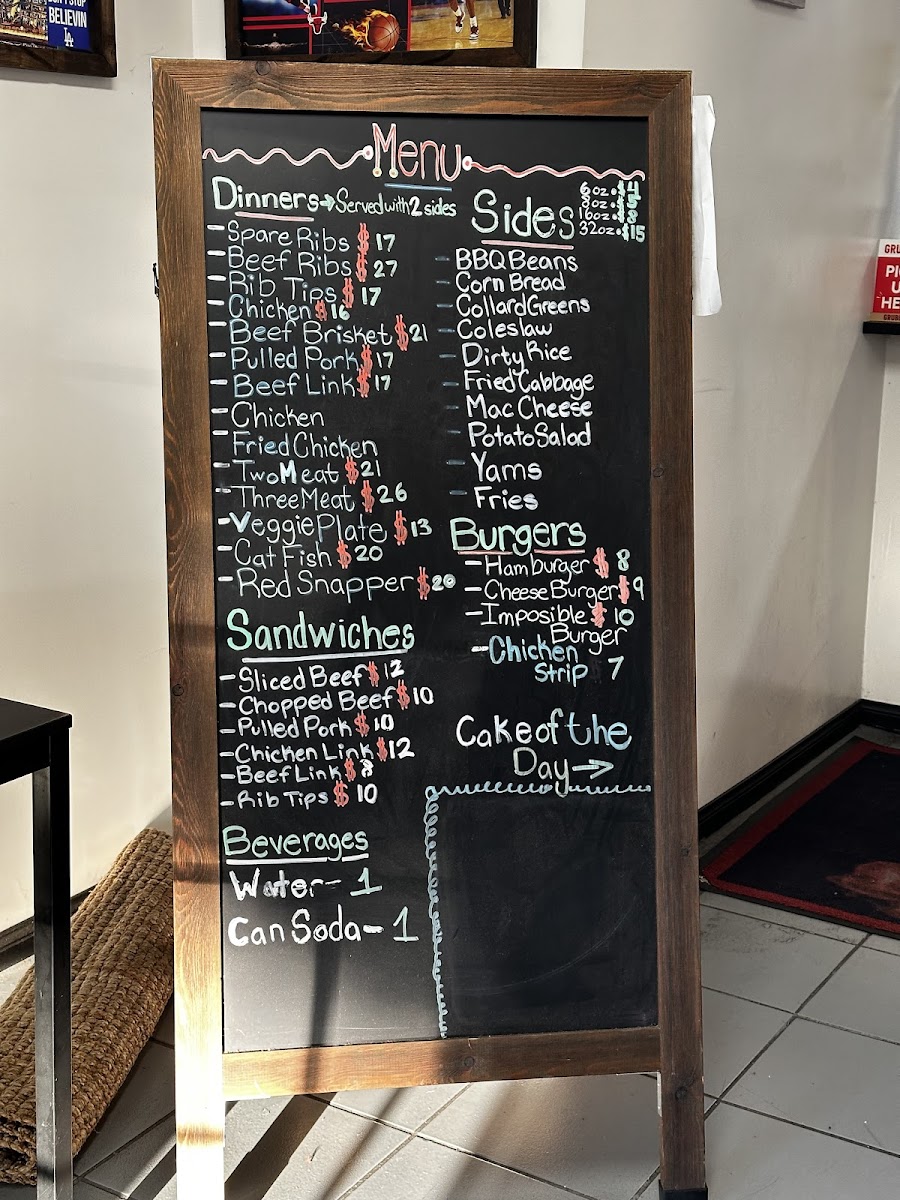 BELIEVIN
LA
Menu
Dinners→Served with 2 sides
- Spare Ribs $17
- Beef Ribs $27
- Rib Tips $17
- Chicken $16
- Beef Brisket $21
- Pulled Pork $17
- Beef Link $17
- Chicken
- Fried Chicken
- Two Meat $21
- Three Meat $26
- Veggie Plate $13
- Cat Fish $20
- Red Snapper $20
Sandwiches
- Sliced Beef $12
- Chopped Beef $10
- Pulled Pork $10
- Chicken Link $12
- Beef Link $8
- Rib Tips $10
Beverages
Water - 1
Can Soda - 1
Sides
6oz • $4
8oz • $5
16oz • $8
32oz • $15
- BBQ Beans
- Corn Bread
- Collard Greens
- Coleslaw
- Dirty Rice
- Fried Cabbage
- Mac Cheese
- Potato Salad
- Yams
- Fries
Burgers
- Hamburger $8
- Cheese Burger $9
- Imposible $10
Burger
- Chicken
Strip 7
Cake of the
Day→